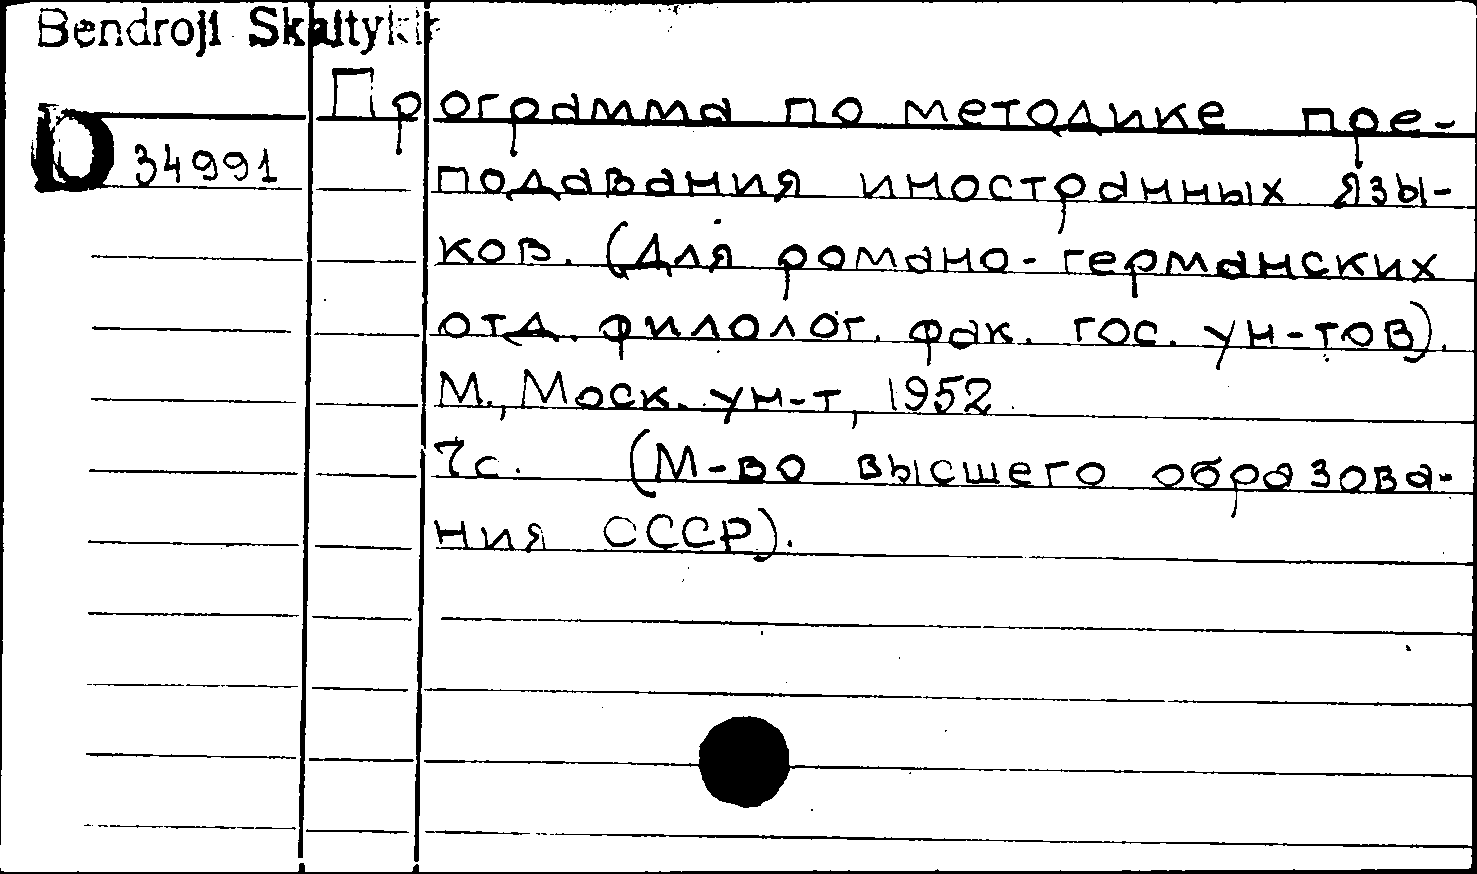 Bendroji Skaitykl
Программа по методике пре-
D 34991
подавания иностранных язы-
ков. (Для романо-германских
отд. филолог. фак. гос. ун-тов).
М., Моск. ун-т, 1952
7с. (М-во высшего образова-
ния СССР).